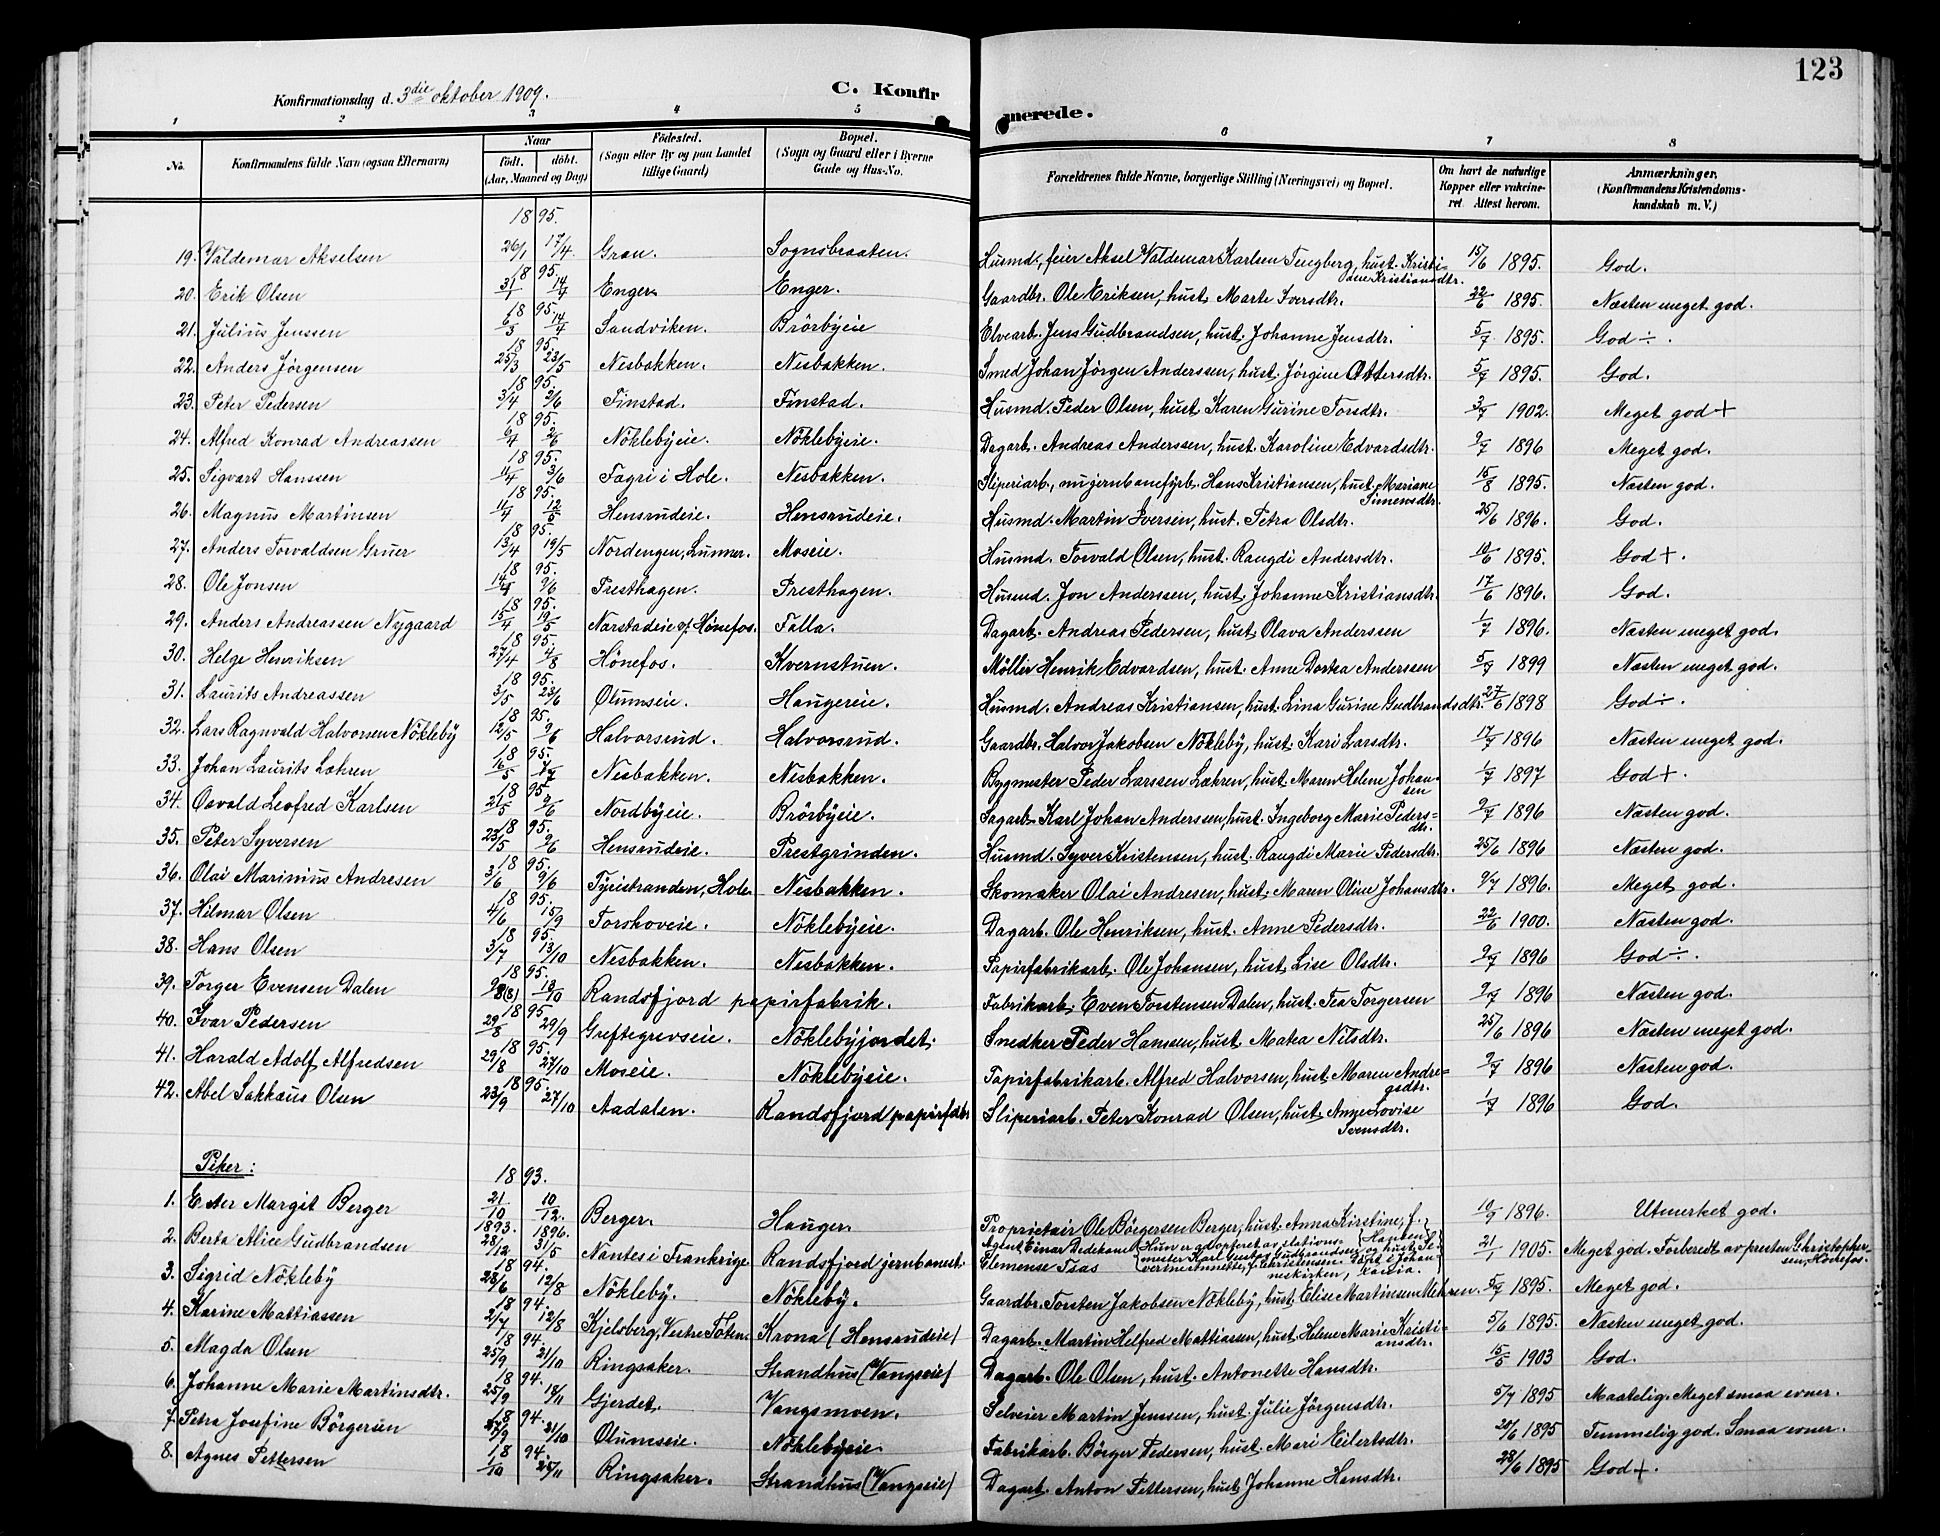 123
Konfirmationsdag d. 3die oktober 1909. C. Konfirmerede.
1 2 3 4 5 6 7 8
No. Konfirmandens fulde Navn (ogsaa Efternavn) Naar födt. döbt. (Aar, Maaned og Dag) Födested. (Sogn eller By og paa Landet tillige Gaard) Bopæl. (Sogn og Gaard eller i Byerne Gade og Hus-No. Forældrenes fulde Navne, borgerlige Stilling (Næringsvei) og Bopæl. Om havt de naturlige Kopper eller vakcineret. Attest herom. Anmærkninger. (Konfirmandens Kristendomskundskab m. V.)
1895.
19. Valdemar Akselsen 26/1 17/4 Gran. Sognsbraaten. Husmd., feier Aksel Valdemar Karlsen Tengberg, hust. Kristiane Kristiansdtr. 15/6 1895. God.
1895.
20. Erik Olsen 31/1 14/4 Enger. Enger. Gaardbr. Ole Eriksen, hust. Marte Iversdtr. 22/6 1895. Næsten meget god.
1895.
21. Julius Jenssen 6/3 14/4 Sandviken. Brörbyeie Elvearb. Jens Gudbrandsen, hust. Johanne Jensdtr. 5/7 1895. God ÷.
1895.
22. Anders Jörgensen 25/3 23/5 Nesbakken. Nesbakken. Smed Johan Jörgen Anderssen, hust. Jörgine Ottersdtr. 5/7 1895. God.
1895.
23. Peter Pedersen 3/4 3/6 Finstad. Finstad. Husmd. Peder Olsen, hust. Karen Gurine Torsdtr. 3/7 1902. Meget god +
1895.
24. Alfred Konrad Andreassen 9/4 2/6 Nöklebyeie. Nöklebyeie. Dagarb. Andreas Anderssen, hust. Karoline Edvardsdtr. 9/7 1896 Meget god.
1895.
25. Sigvart Hanssen 14/4 3/6 Fagri i Hole. Nesbakken. Sliperiarb., nu jernbanefyrb. Hans Kristiansen, hust. Mariane Simensdtr. 15/8 1895. Næsten god.
1895.
26. Magnus Martinsen 11/4 12/5 Hensrudeie. Hensrudeie. Husmd. Martin Iversen, hust. Petra Olsdtr. 25/6 1896. God.
1895.
27. Anders Torvaldsen Gruer 13/4 19/5 Nordengen, Lunner. Moseie. Husmd. Torvald Olsen, hust. Rangdi Andersdtr. 10/6 1895. God +.
1895.
28. Ole Jonsen 14/4 9/6 Presthagen. Presthagen. Husmd. Jon Anderssen, hust. Johanne Kristiansdtr. 17/6 1896. God.
1895.
29. Anders Andreassen Nygaard 15/4 19/5 Norstadeie v/ Hönefos. Falla. Dagarb. Andreas Pedersen, hust. Olava Anderssen 1/7 1896. Næsten meget god.
1895.
30. Helge Henriksen 27/4 4/8 Hönefos. Kvernstuen. Möller Henrik Edvardsen, hust. Anne Dortea Anderssen 5/7 1899 Næsten meget god.
1895.
31. Laurits Andreassen 3/5 23/6 Olumseie. Haugereie. Husmd. Andreas Kristiansen, hust. Lina Gurine Gudbrandsdtr. 27/6 1898 God ÷.
1895.
32. Lars Ragnvald Halvorsen Nökleby 12/5 9/6 Halvorsrud. Halvorsrud. Gaardbr. Halvor Jakobsen Nökleby, hust. Kari Larsdtr. 17/7 1896 Næsten meget god.
1895.
33. Johan Laurits Læhren 16/5 7/7 Nesbakken. Nesbakken. Bygmester Peder Larssen Læhren, hust. Maren Helene Johansen 1/7 1897 God +.
1895.
34. Osvald Leofred Karlsen 21/5 9/6 Nordbyeie. Brörbyeie. Sagarb. Karl Johan Anderssen, hust. Ingeborg Marie Pedersdtr. 9/7 1896 Næsten god.
1895.
35. Peter Syversen 23/5 9/6 Hensrudeie. Prestgrinden. Husmd. Syver Kristensen, hust. Rangdi Marie Pedersdtr. 25/6 1896 Næsten god.
1895.
36. Olai Marinius Andresen 3/6 9/6 Tyristranden, Hole Nesbakken. Skomaker Olai Andresen, hust. Maren Oline Johansdtr. 9/7 1896. Meget god.
1895.
37. Hilmar Olsen 4/6 15/9 Torshoveie. Nöklebyeie. Dagarb. Ole Henriksen, hust. Anne Pedersdtr. 22/6 1900. Næsten god.
1895.
38. Hans Olsen 3/7 13/10 Nesbakken. Nesbakken. Papirfabrikarb. Ole Johansen, hust. Lise Olsdtr. 9/7 1896 God ÷.
1895.
39. Torger Evensen Dalen 9/8(8) 13/10 Randsfjord papirfabrik. Fabrikarb. Even Torstensen Dalen, hust. Tea Torgersen 9/7 1896 Næsten god.
1895.
40. Ivar Pedersen 29/8 29/9 Greftegrevseie. Nöklebyjordet. Snedker Peder Hansen, hust. Matea Nilsdtr. 25/6 1896 Næsten meget god.
1895.
41. Harald Adolf Alfredsen 29/8 27/10 Moseie. Nöklebyeie. Papirfabrikarb. Alfred Halvorsen, hust. Maren Andreasdtr. 9/7 1896 Næsten god.
1895.
42. Abel Sakkæus Olsen 23/9 27/10 Aadalen. Randsfjord papirfabr. Sliperiarb. Peter Konrad Olsen, hust. Anne Lovise Svensdtr. 1/7 1896 God.
Piker:
1893.
1. Ester Margit Berger 21/10 10/12. Berger. Hauger. Proprietair Ole Börgersen Berger, hust. Anna Kirstine, f. Hansen 10/9 1896. Utmerket god.
1893. 1896.
2. Berta Alice Gudbrandsen 28/12 31/5 Nantes i Frankrige Randsfjord jernbanest. Agent Einar Dedekam Clemense Tsas {Hun er adopteret av stationsmester Karl Gustav Gudbrandsen og hust. Severine Annette, f. Christensen. Döpt i Johanneskirken, 21/1 1905. Meget god. Forberedt av presten Christophersen, Hönefos.
1894.
3. Sigrid Nökleby 28/6 12/8 Nökleby. Nökleby. Gaardbr. Torsten Jakobsen Nökleby, hust. Elise Martinsen Mehren. 5/7 1895. Meget god.
1894.
4. Karine Mattiassen 2/7 12/8 Kjelsberg, Vestre Toten. Krona (Hensrudeie) Dagarb. Martin Helfred Mattiassen, hust. Helene Marie Kristiansdtr. 5/6 1895. Næsten meget god.
1894.
5. Magda Olsen 25/9 21/10 Ringsaker. Strandhus (Vangseie) Dagarb. Ole Olsen, hust. Antonette Hansdtr. 15/5 1903 God.
1894.
6. Johanne Marie Martinsdtr. 25/9 18/11 Gjerdet. Vangsmoen. Selveier Martin Jenssen, hust. Julie Jörgensdtr. 5/7 1895 Maatelig. Meget smaa evner.
1894.
7. Petra Josefine Börgersen 27/9 21/10 Olumseie. Nöklebyeie. Fabrikarb. Börger Pedersen, hust. Mari Eilertsdtr. 28/6 1895 Temmelig god. Smaa evner.
1894.
8. Agnes Pettersen 1/10 25/11 Ringsaker. Strandhus (Vangseie) Dagarb. Anton Pettersen, hust. Johanne Hansdtr. 28/6 1895 God +.